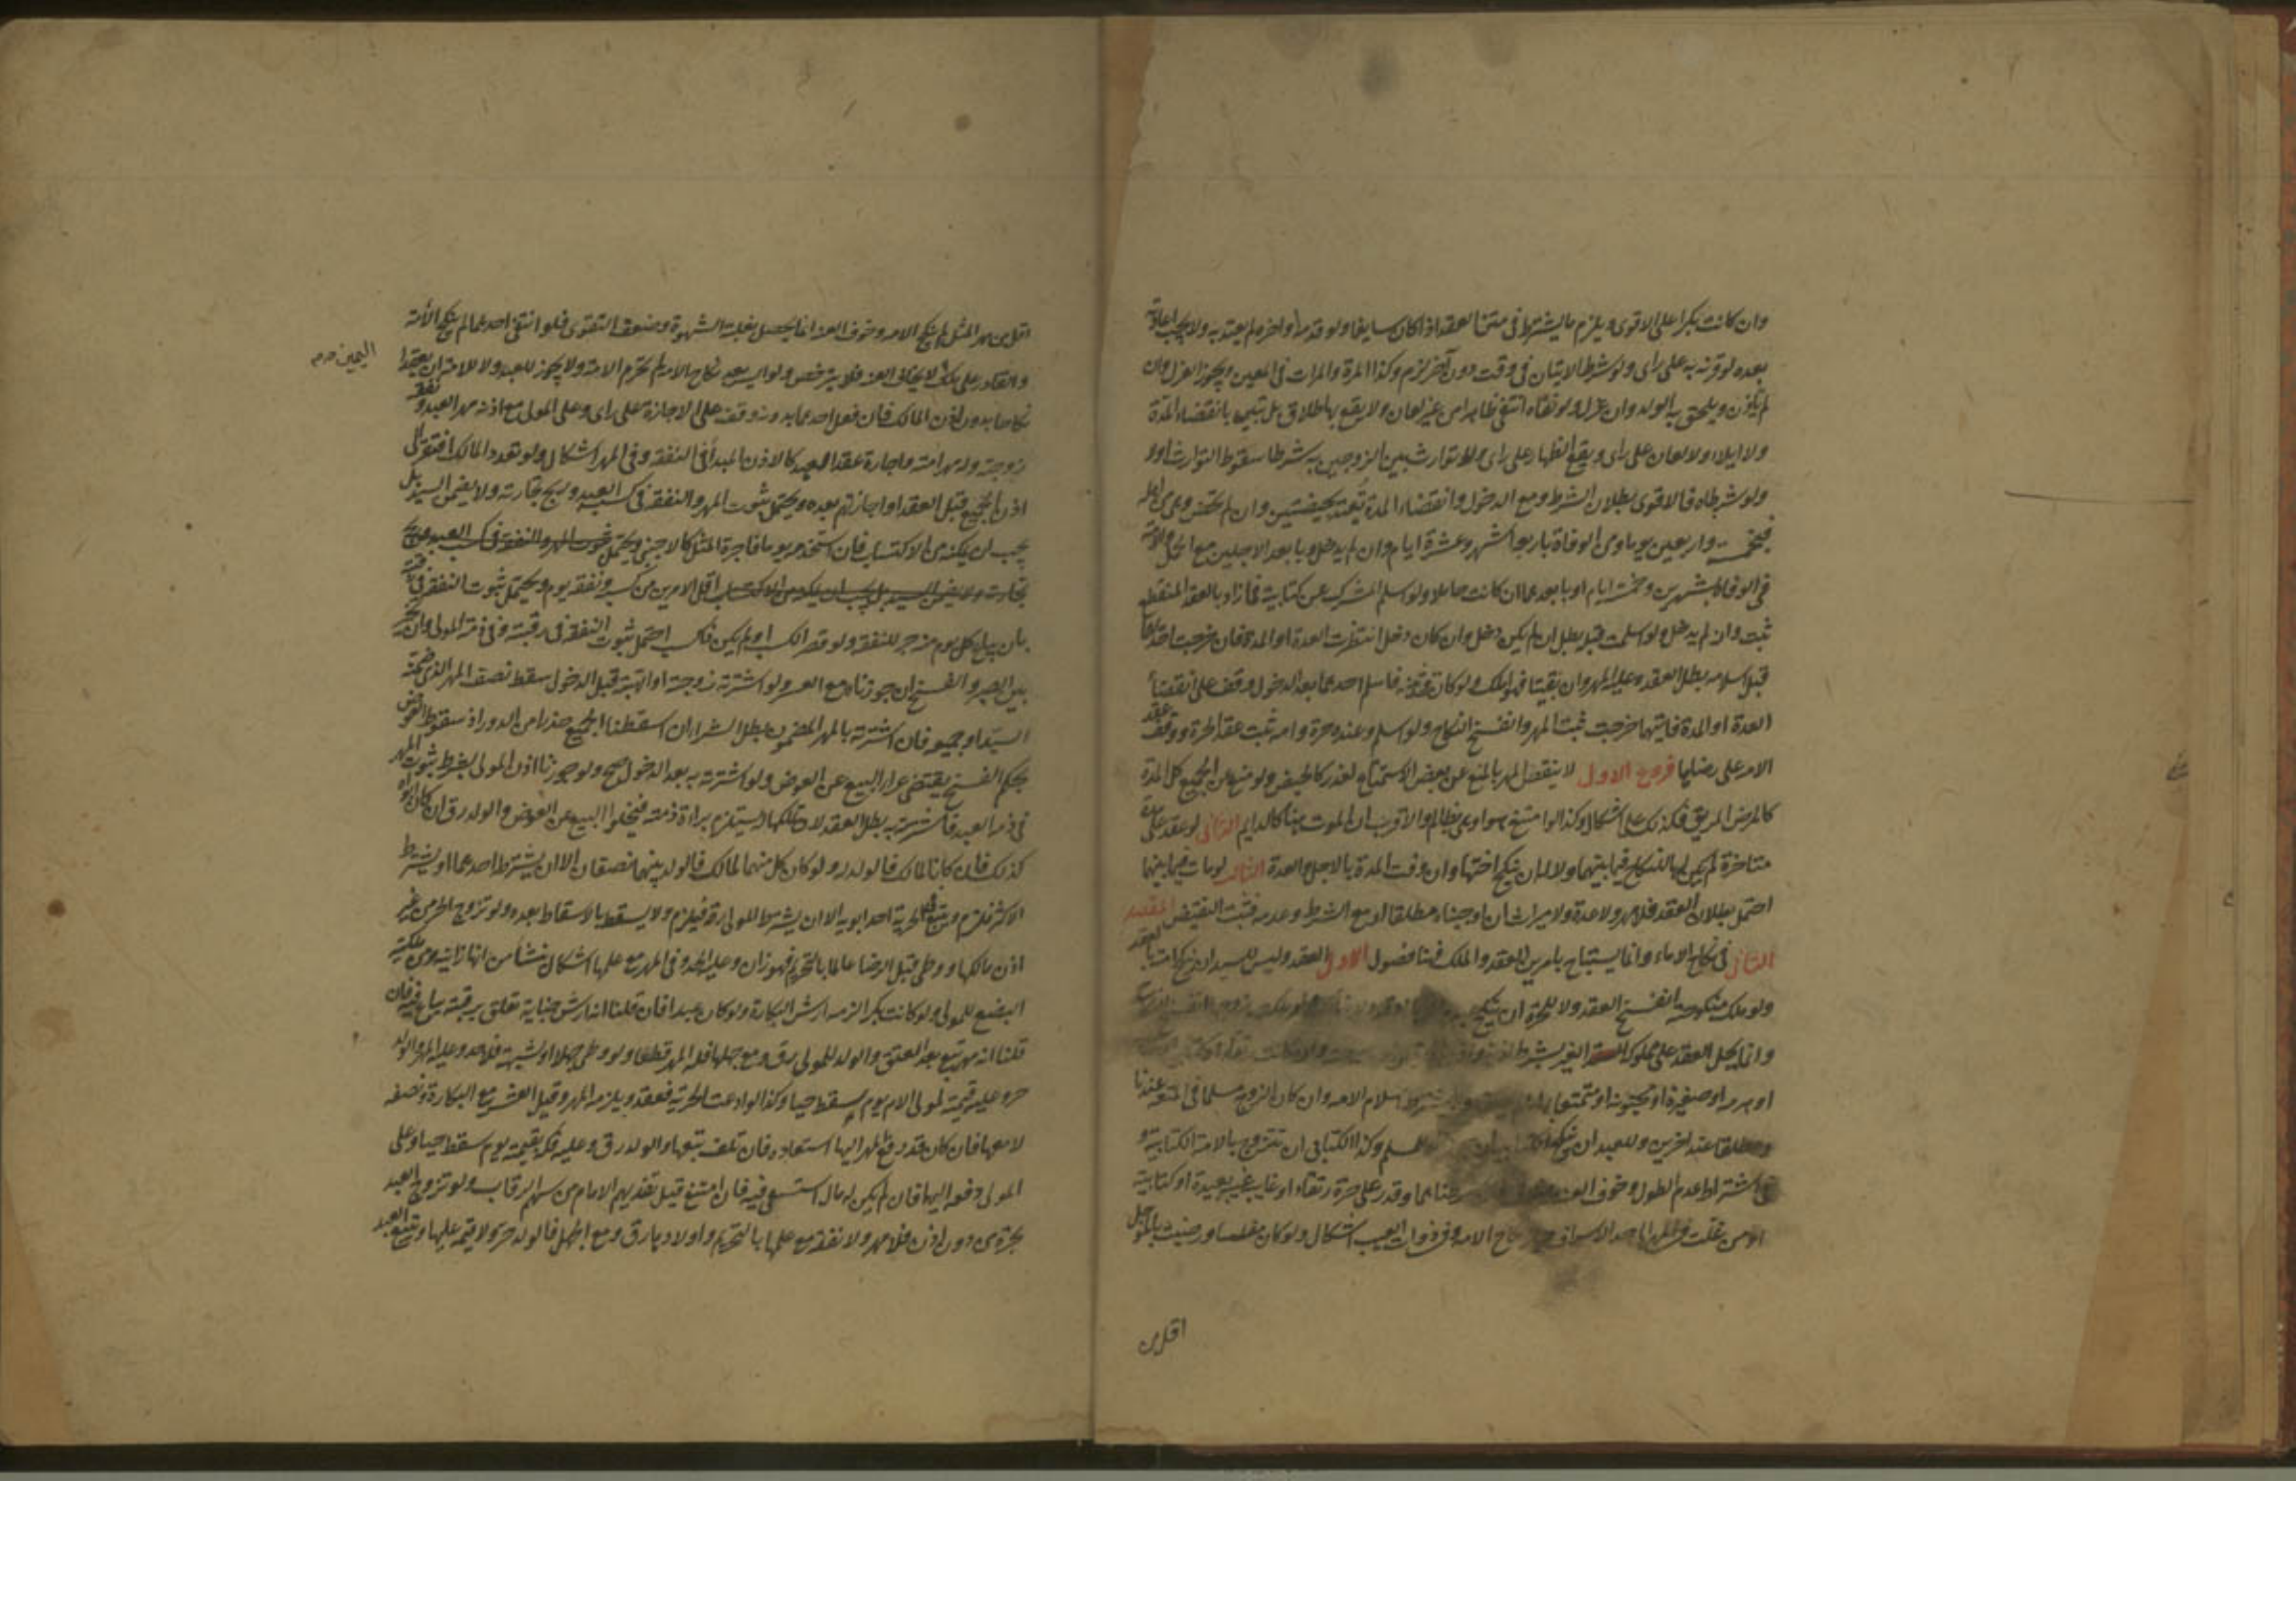 وان كانت بكرا على الاقوى ويلزم ما يشترط في متن العقد اذا كان سايغا ولو قدمه او اخره لم يعتد به ولا يجب اعادته
بعده لو قرنه به على راى ولو شرط الاتيان في وقت دون آخر لزم وكذا المرة والمرات في المعين ويجوز العزل وان
لم تأذن ويلحق به الولد وان عزل ولو نفاه انتفى ظاهرا من غير لعان ولا يقع بها طلاق بل تبين بانقضاء المدة
ولا ايلاء ولا لعان على راى ويقع الظهار على راى ولا توارث بين الزوجين به شرطا سقوط التوارث او لا
ولو شرطاه فالاقوى بطلان الشرط ومع الدخول وانقضاء المدة تعتد بحيضتين وان لم تحض وهى من اهله
فبخمسة واربعين يوما ومن الوفاة باربعة اشهر وعشرة ايام وان لم يدخل وبابعد الاجلين مع الحمل والامة
في الوفاة بشهرين وخمسة ايام او بابعدهما ان كانت حاملا ولو اسلم المشرك عن كتابية فما زاد بالعقد المنقطع
ثبت وان لم يدخل ولو اسلمت قبله بطل ان لم يكن دخل وان كان دخل انتظرت العدة او المدة فان خرجت احدهما
قبل اسلامه بطل العقد وعليه المهر وان بقيتا فهو املك ولو كانت غيره فاسلم احدهما بعد الدخول وقف على انقضاء
العدة او المدة فايتهما خرجت ثبت المهر وانفسخ النكاح ولو اسلم وعنده حرة وامة ثبت عقد الحرة ووقف عقد
الامة على رضاها فروع الاول لا ينقص المهر بالمنع عن بعض الاستمتاع لعذر كالحيض ولو منع عن الجميع كل المدة
كالمرض المدنف فكذلك على اشكال وكذا لو امتنع هو او هى بظالم والاقرب ان الموت هنا كالدايم الثاني لو عقد على مدة
متاخرة لم يكن لها النكاح فيما بينهما ولا له ان ينكح اختها وان وفت المدة بالاجل والعدة الثالث لو مات فيما بينهما
احتمل بطلان العقد فلا مهر ولا عدة ولا ميراث ان اوجبناه مطلقا او مع الشرط وعدمه فتثبت النقيض المقصد
الثاني في نكاح الاماء وانما يستباح بامرين العقد والملك فهنا فصول الاول العقد وليس للسيد ان ينكح امته بالعقد
ولو ملك منكوحته انفسخ العقد ولا للحرة ان تنكح
وانما يحل العقد على مملوكة الغير بشرط
او هرمة او صغيرة او مجنونة او متمتعا اسلام الامة وان كان الزوج مسلما في المتعة عندنا
ومطلقا عند اخرين وللعبد ان ينكحها وكذا الكتابى ان تتزوج بالامة الكتابية و
في اشتراط عدم الطول وخوف العنت وقدر على حرة رتقاء او غايبة غيبة بعيدة او كتابية
او من غلت الامة وفى ذوات العيب اشكال ولو كان مفلسا ورضيت بالمؤجل
اقل من
اقل من مهر المثل لم ينكح الامة وخوف العنت انما يحصل بغلبة الشهوة وضعف التقوى فلو انتفى احدهما لم ينكح الأمة
والقادر على ملك لا يخاف العنت فلا يترخص ولو ايسر بعد نكاح الامة لم تحرم الامة ولا يجوز للعبد ولا للامة ان يعقدا
اليمين صح
نكاحا بدون اذن المالك فان فعل احدهما بدونه وقف على الاجازة على راى وعلى المولى مع اذنه مهر العبد ونفقة
زوجته وله مهر امته واجازة عقد العبد كالاذن المبتدأ في النفقة وفى المهر اشكال ولو تعدد المالك افتقر الى
اذن الجميع قبل العقد او اجازتهم بعده ويحتمل ثبوت المهر والنفقة في كسب العبد وربح تجارته ولا يضمن السيد بل
يجب ان يمكنه من الاكتساب فان استخدم يوما فاجرة المثل كالاجنبى ويحتمل ثبوت المهر والنفقة في كسب العبد وربح
تجارته ولا يضمن السيد بل يجب ان يمكنه من الاكتساب اقل الامرين من كسبه ونفقة يوم ويحتمل ثبوت النفقة في رقبته
بان يباع كل يوم منه جزء للنفقة ولو قصر الكسب او لم يكن فكسب احتمل ثبوت النفقة في رقبته وفى ذمة المولى وان تتخير
بين الصبر والفسخ ان جوزناه مع العسر ولو اشترته زوجته او اتهبته قبل الدخول سقط نصف المهر الذى ضمنه
السيد او جميعه فان اشترته بالمهر المضمون بطل الشراء ان اسقطنا الجميع حذرا من الدور اذ سقوط العوض
بحكم الفسخ يقتضى عراء البيع عن العوض ولو اشترته به بعد الدخول صح ولو جوزنا اذن المولى بشرط ثبوت المهر
في ذمة العبد فاشترته به بطل العقد لان تملكها له يستلزم براءة ذمته فيخلوا البيع عن العوض والولد رق ان كان ابواه
كذلك فان كانا لمالك فالولد له ولو كان كل منهما لمالك فالولد بينهما نصفان الا ان يشترط احدهما او يشترط
الاكثر فيلزم ويتبع الحرية احد ابويه الا ان يشترط المولى رقه فيلزم ولا يسقط بالاسقاط بعده ولو تزوج الحر من غير
اذن مالكها ووطى قبل الرضا عالما بالتحريم فهو زان وعليه الحد وفى المهر مع علمها اشكال ينشأ من انها زانية ومن ملكية
البضع للمولى ولو كانت بكرا لزمه ارش البكارة ولو كان عبدا فان قلنا انه ارش جناية تعلق برقبته يباع فيه فان
قلنا انه مهر تبع به بعد العتق والولد للمولى رق ومع جهلها فله المهر قطعا ولو وطى جهلا او لشبهة فلا حد وعليه المهر والولد
حر وعليه قيمته لمولى الام يوم سقط حيا وكذا لو ادعت الحرية فعقد ويلزمه المهر وقيل العشر مع البكارة ونصفه
لا معها فان كان قد دفع المهر اليها استعاده فان تلف تبعها والولد رق وعليه فكه بقيمته يوم سقط حيا وعلى
المولى دفعه اليها فان لم يكن له مال استسعى فيه فان امتنع قيل تفديهم الامام من سهم الرقاب ولو تزوج العبد
بحرة من دون اذنه فلا مهر ولا نفقة مع علمها بالتحريم واولادها رق ومع الجهل فالولد حر ولا قيمة عليها وتتبع العبد